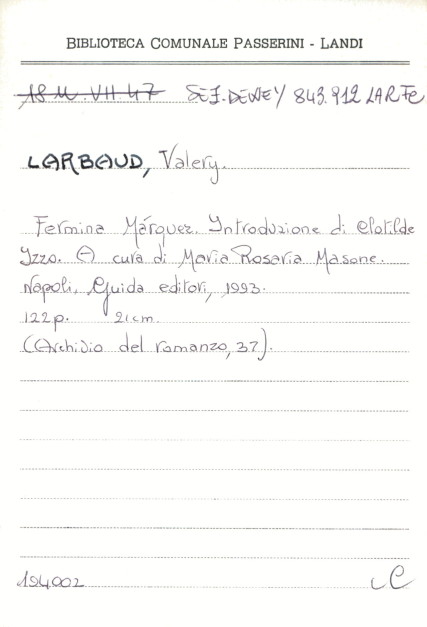 BIBLIOTECA COMUNALE PASSERINI - LANDI
18 M. VII. 47 SEZ. DEWEY 843.912 LAR Fe
LARBAUD, Valery.
Fermina Márquez. Introduzione di Clotilde
Izzo. A cura di Maria Rosaria Masone.
Napoli, Guida editori, 1993.
122 p. 21 cm.
(Archivio del romanzo, 37).
194002